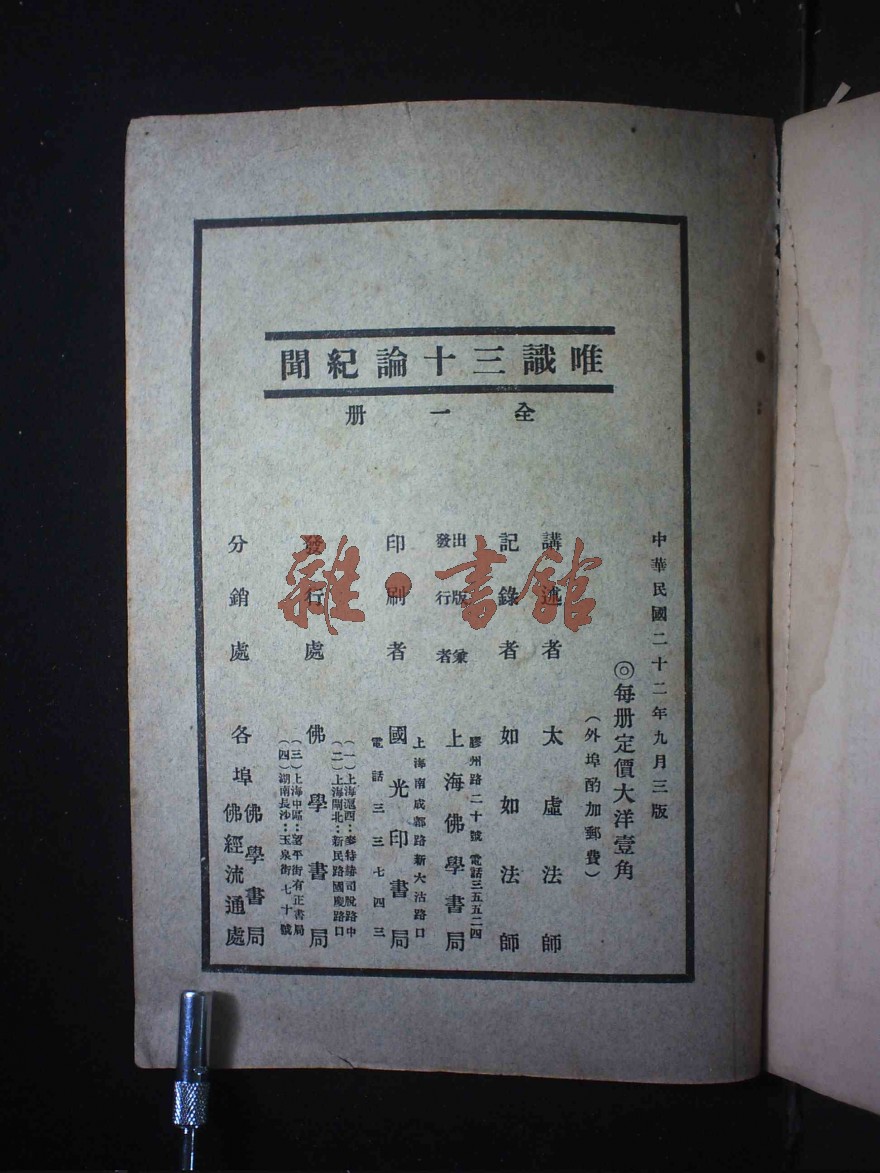 唯識三十論紀聞
全一册
中華民國二十二年九月三版
◎每册定價大洋壹角
（外埠酌加郵費）
講述者 太虛法師
記錄者 如如法師
出版兼發行者 上海佛學書局
膠州路二十號 電話三五五二四
印刷者 國光印書局
上海南成都路新大沽路口
電話三三七四三
發行處 佛學書局
（一）上海滬西：麥特赫司脫路中
（二）上海閘北：新民路國慶路口
（三）上海中區：望平街有正書局
（四）湖南長沙：玉泉街七十號
分銷處 各埠佛學書局
佛經流通處
雜·書館